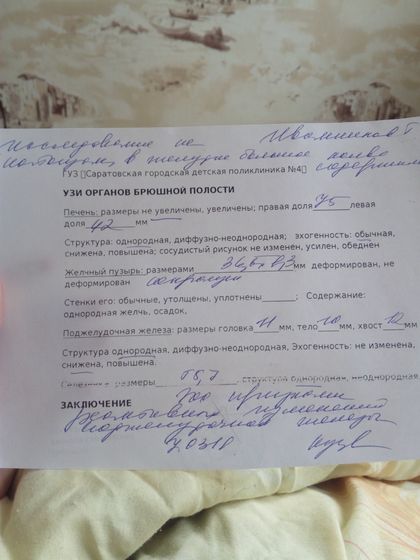 Исследование не
натощак, в желудке большое кол-во
ГУЗ Саратовская городская детская поликлиника №4
УЗИ ОРГАНОВ БРЮШНОЙ ПОЛОСТИ
Печень: размеры не увеличены, увеличены; правая доля 75 левая
доля 42 мм
Структура: однородная, диффузно-неоднородная; эхогенность: обычная,
снижена, повышена; сосудистый рисунок не изменен, усилен, обеднен
Желчный пузырь: размерами мм деформирован, не
деформирован
Стенки его: обычные, утолщены, уплотнены______; Содержание:
однородная желчь, осадок,
Поджелудочная железа: размеры головка 11 мм, тело 10 мм, хвост 12 мм
Структура однородная, диффузно-неоднородная, Эхогенность: не изменена,
снижена, повышена.
Селезенка размеры структура однородная, неоднородная
ЗАКЛЮЧЕНИЕ Эхо признаки
реактивных изменений
поджелудочной железы